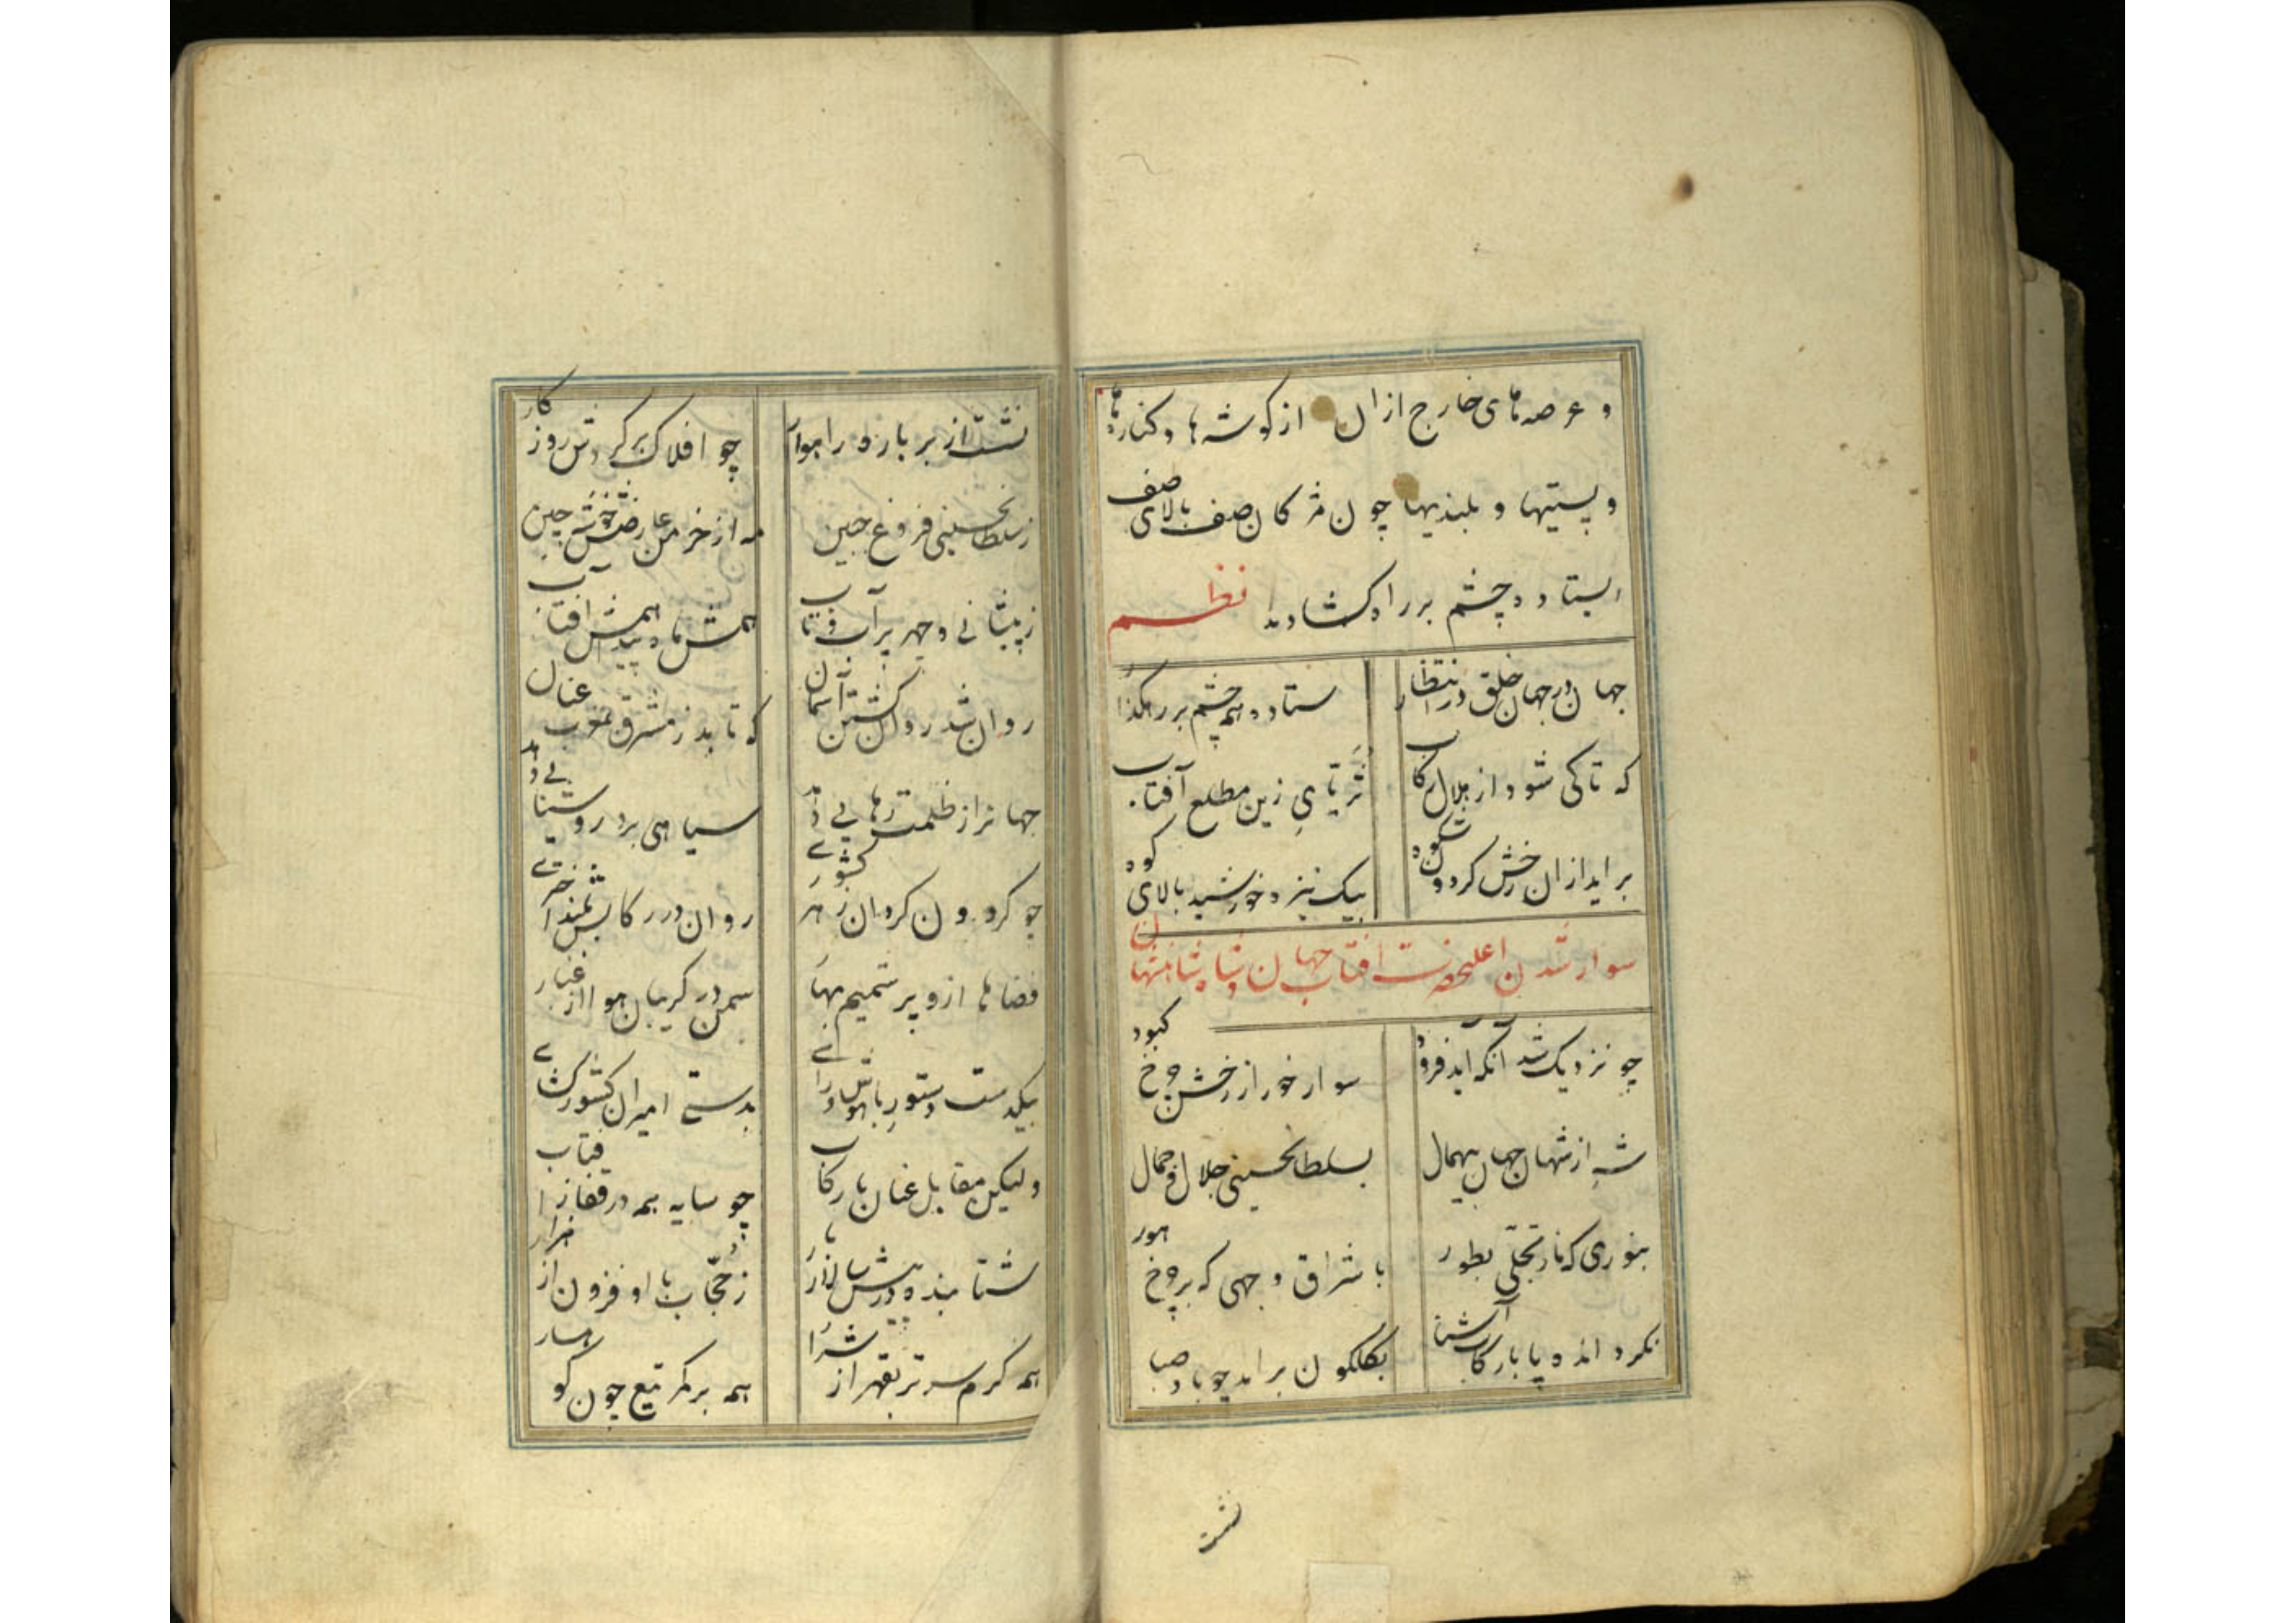 و عرصه‌های خارج ازان از کوشه‌ها و کنارها
و پستیها و بلندیها چون مژکان صف بالای صف
ایستاده چشم براه کشادند نظم
جهان در جهان خلق در انتظار ستاده همه چشم بر رهکذار
که تا کی شود از هلال رکاب ثریّای زین مطلع آفتاب
براید ازان رخش کردون شکوه بیک نیزه خورشید بالای کوه
سوار شدن اعلیحضرت افتاب جهان و شاه شاهنشهان
چو نزدیک شد آنکه آید فرود سوار خور از رخش چرخ کبود
شه از شهان جهان بیهمال بسلطانحسینی جلال و جمال
بنوری که نار تجلّی بطور باشراق وجهی که بر چرخ هور
نکرد انده پا با رکاب آشنا بکلکون برامد چو باد صبا
نشست
نشست از بر باره راهوار چو افلاک برکردش روزکار
ز سلطانحسینی فروغ جبین مه از خرمن عارضش خوشه چین
ز پیشانی و چهر پر آب و تاب همش ماه پیدا همش افتاب
روان شد روان کشتن آسمان که تابد ز مشرق بمغرب عنان
جهانرا ز ظلمت رهایی دهد سیاهی برد روشنایی دهد
چو کردون کردان ز هر کشوری روان در رکابش بلند اختری
فضاها ازو پر شمیم بهار سمن در کریبان هوا از غبار
بیکدست دستور باهوش و رای بدستی امیران کشورکشای
ولیکن مقابل عنان با رکاب چو سایه همه در قفا ز افتاب
شتابنده در پیش سالار بار ز حجّاب با او فزون از هزار
همه کرم سر تر بقهر از شرار همه بر کمر تیغ چون کوهسار